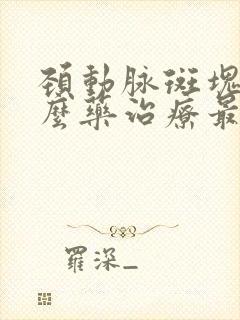 頚動脉斑塊
麼藥治療最
羅深_